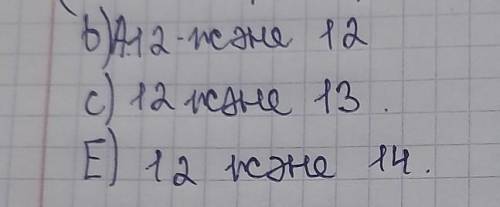 b) А.12-және 12
c) 12 және 13.
E) 12 және 14.